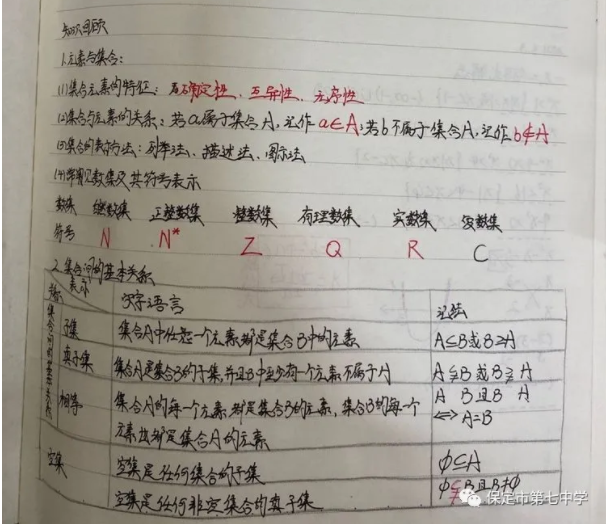 知识回顾
1.元素与集合:
(1)集合元素的特征: 确定性、互异性、无序性
(2)集合与元素的关系:若a属于集合A,记作a∈A;若b不属于集合A,记作b∉A
(3)集合的表示法:列举法、描述法、图示法
(4)常见数集及其符号表示
数集 自然数集 正整数集 整数集 有理数集 实数集 复数集
符号 N N* Z Q R C
2.集合间的基本关系
表示
关系 文字语言 记法
集合间的基本关系
子集 集合A中任意一个元素都是集合B中的元素 A⊆B或B⊇A
真子集 集合A是集合B的子集,并且B中至少有一个元素不属于A A⫋B或B⫌A
相等 集合A的每一个元素都是集合B的元素,集合B的每一个 A B且B A
元素也都是集合A的元素 ⟺A=B
空集 空集是任何集合的子集 ∅⊆A
空集是任何非空集合的真子集 ∅⫋B且B≠∅
保定市第七中学